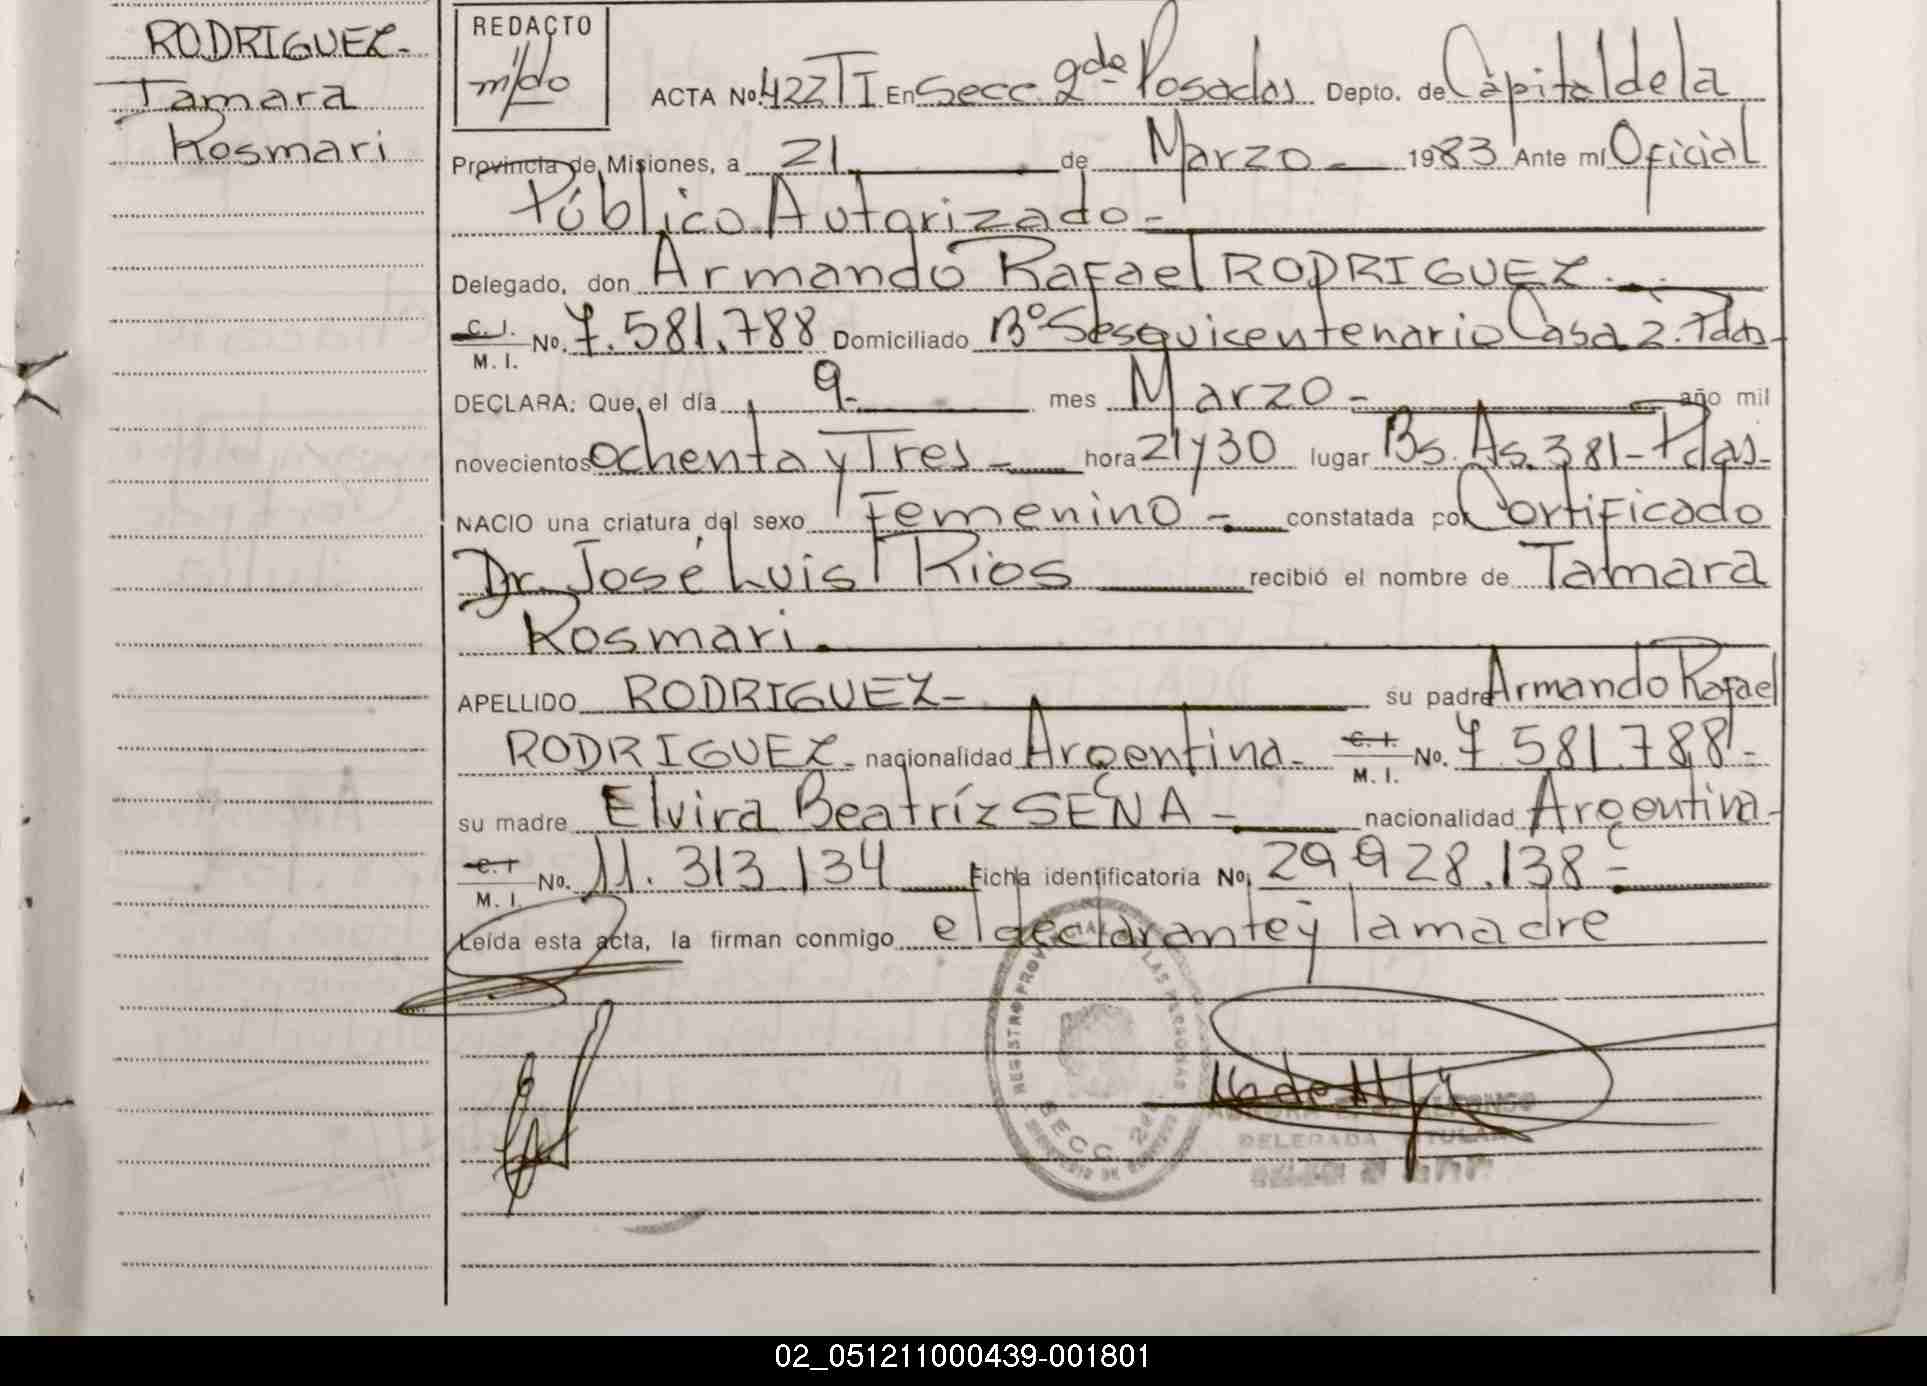 RODRIGUEZ-
Tamara
Rosmari
REDACTO
ACTA No. 422 T I En Secc. 2da Posadas Depto. de Capital de la
Provincia de Misiones, a 21 de Marzo - 1983 Ante mi Oficial
Público Autorizado -
Delegado, don Armando Rafael RODRIGUEZ.
C. I. / M. I. No. 7.581.788 Domiciliado B° Sesquicentenario Casa 2. Pdas-
DECLARA: Que, el día 9- mes Marzo - año mil
novecientos ochenta y Tres - hora 21 y 30 lugar Bs. As. 381- Pdas-
NACIO una criatura del sexo Femenino - constatada por Certificado
Dr. José Luis Rios recibió el nombre de Tamara
Rosmari.
APELLIDO RODRIGUEZ- su padre Armando Rafael
RODRIGUEZ- nacionalidad Argentina- C. I. / M. I. No. 7.581.788-
su madre Elvira Beatríz SENA - nacionalidad Argentina-
C. I / M. I. No. 11.313.134 Ficha identificatoria No. 29.928.138-
Leída esta acta, la firman conmigo el declarante y la madre
REGISTRO PROVINCIAL DE LAS PERSONAS
SECC. 2da.
DELEGADA TITULAR
02_051211000439-001801